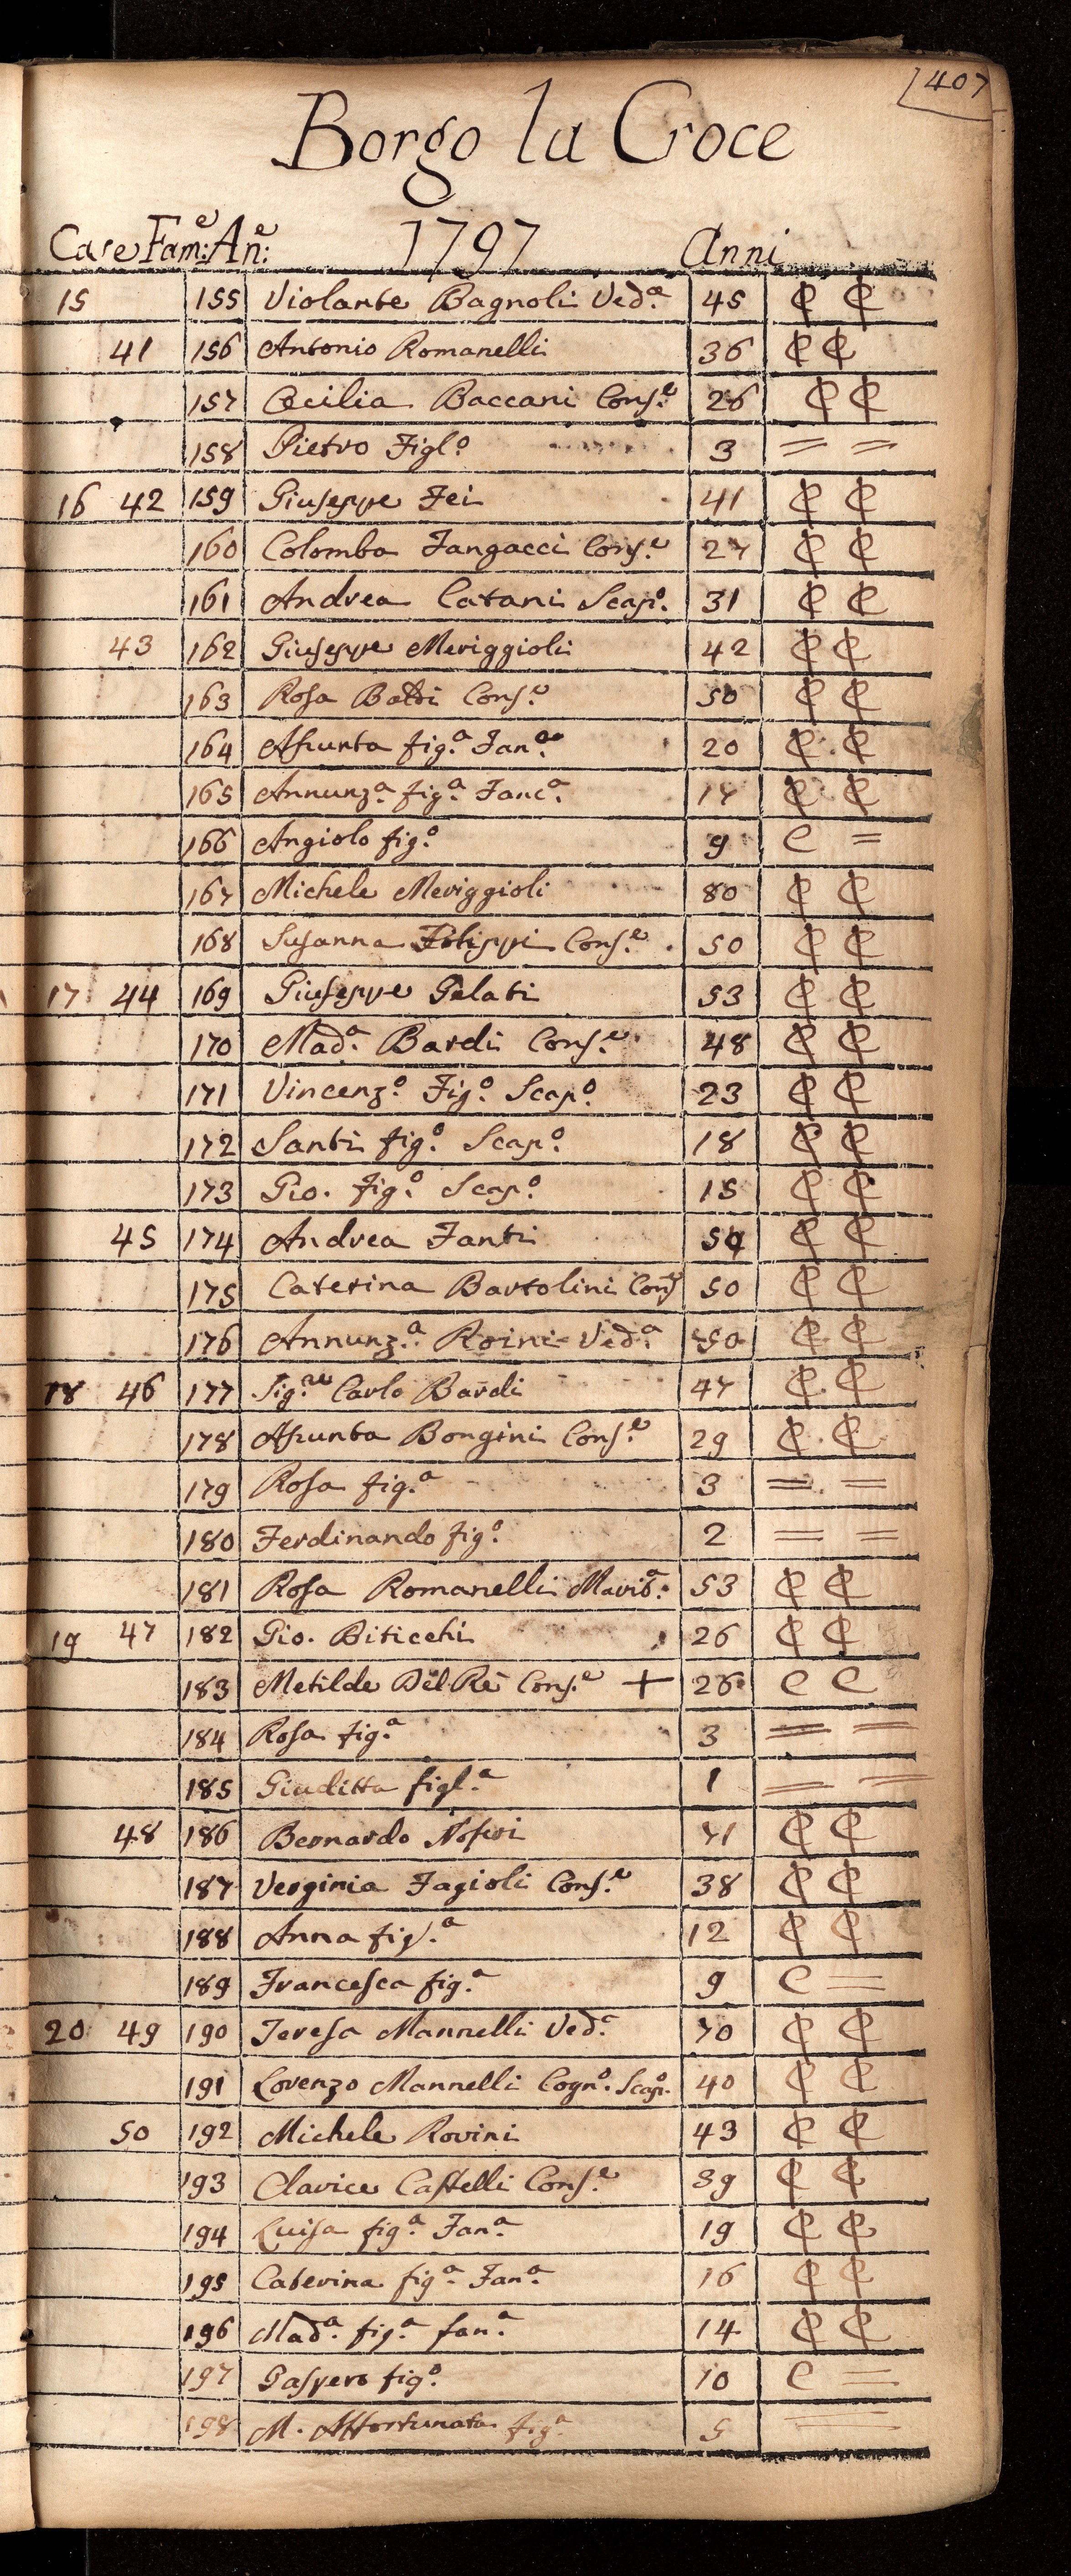 407
Borgo la Croce
Case Fam:e An:e 1797 Anni
15 155 Violante Bagnoli Ved.a 45 ₵ ₵
41 156 Antonio Romanelli 36 ₵ ₵
157 Cecilia Baccani Cons.e 26 ₵ ₵
158 Pietro Figl.o 3 = =
16 42 159 Giuseppe Fei 41 ₵ ₵
160 Colomba Fangacci Cons.e 27 ₵ ₵
161 Andrea Catani Scap.o 31 ₵ ₵
43 162 Giuseppe Meriggioli 42 ₵ ₵
163 Rosa Cons.e 50 ₵ ₵
164 Assunta fig.a Fan.a 20 ₵ ₵
165 Annunz.a fig.a Fanc.a 17 ₵ ₵
166 Angiolo fig.o 9 C =
167 Michele Meriggioli 80 ₵ ₵
168 Susanna Filippi Cons.e 50 ₵ ₵
17 44 169 Giuseppe Gelati 53 ₵ ₵
170 Mad.a Bardi Cons.e 48 ₵ ₵
171 Vincenz.o Fig.o Scap.o 23 ₵ ₵
172 Santi fig.o Scap.o 18 ₵ ₵
173 Gio. fig.o Scap.o 15 ₵ ₵
45 174 Andrea Fanti ₵ ₵
175 Caterina Bartolini Cons 50 ₵ ₵
176 Annunz.a Roini Ved.a 50 ₵ ₵
18 46 177 Sig.re Carlo Bardi 47 ₵ ₵
178 Assunta Bongini Cons.e 29 ₵ ₵
179 Rosa fig.a 3 = =
180 Ferdinando fig.o 2 = =
181 Rosa Romanelli Marit.a 53 ₵ ₵
19 47 182 Gio. Biticchi 26 ₵ ₵
183 Metilde Del Rè Cons.e + 26 C C
184 Rosa fig.a 3 = =
185 Giuditta figl.a 1 = =
48 186 Bernardo Noferi 41 ₵ ₵
187 Verginia Fagioli Cons.e 38 ₵ ₵
188 Anna fig.a 12 ₵ ₵
189 Francesca fig.a 9 C =
20 49 190 Teresa Mannelli Ved.a 70 ₵ ₵
191 Lorenzo Mannelli Cogn.o Scap.o 40 ₵ ₵
50 192 Michele Rovini 43 ₵ ₵
193 Clarice Castelli Cons.e 39 ₵ ₵
194 Luisa fig.a Fan.a 19 ₵ ₵
195 Caterina fig.a Fan.a 16 ₵ ₵
196 Mad.a fig.a fan.a 14 ₵ ₵
197 Gaspero fig.o 10 C =
198 M. Affortunata fig.a 5 =